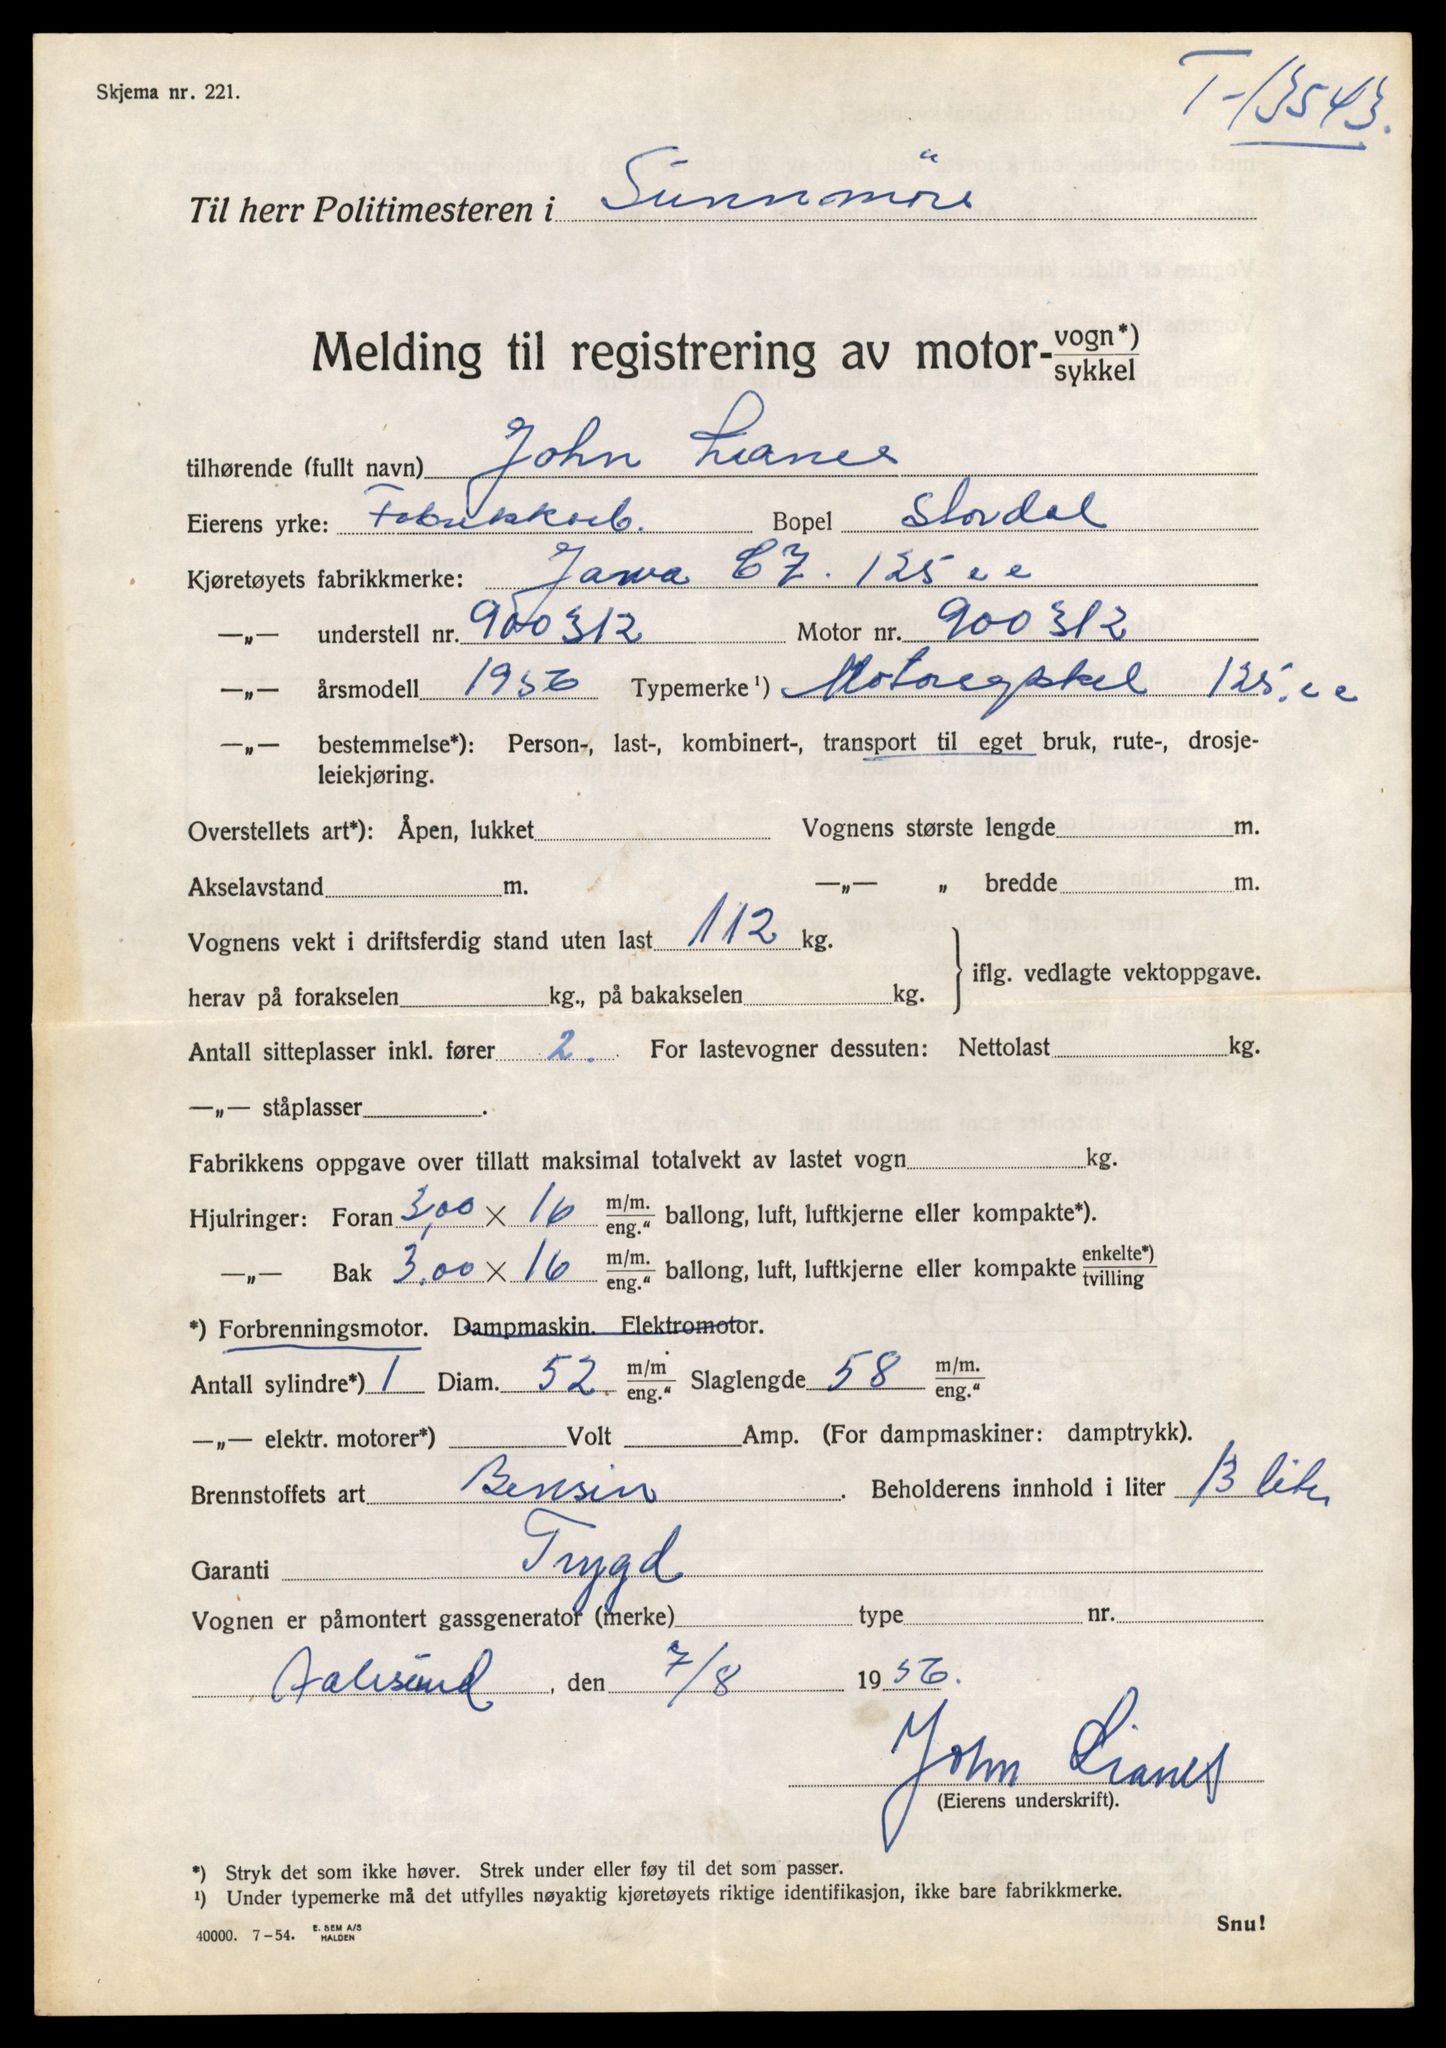 Skjema nr. 221.
T-13543.
Til herr Politimesteren i Sunnmöre
Melding til registrering av motor- vogn*) sykkel
tilhørende (fullt navn) John Lianes
Eierens yrke: Fabrikkarb. Bopel Stordal
Kjøretøyets fabrikkmerke: Jawa CZ. 125 cc
—„— understell nr. 900312 Motor nr. 900312
—„— årsmodell 1956 Typemerke ¹) Motorcykkel 125.cc
—„— bestemmelse*): Person-, last-, kombinert-, transport til eget bruk, rute-, drosje-
leiekjøring.
Overstellets art*): Åpen, lukket Vognens største lengde m.
Akselavstand m. —„— „ bredde m.
Vognens vekt i driftsferdig stand uten last 112 kg.
herav på forakselen kg., på bakakselen kg. } iflg. vedlagte vektoppgave.
Antall sitteplasser inkl. fører 2. For lastevogner dessuten: Nettolast kg.
—„— ståplasser .
Fabrikkens oppgave over tillatt maksimal totalvekt av lastet vogn kg.
Hjulringer: Foran 3,00 × 16 m/m. eng.“ ballong, luft, luftkjerne eller kompakte*).
—„— Bak 3.00 × 16 m/m. eng.“ ballong, luft, luftkjerne eller kompakte enkelte*) tvilling
*) Forbrenningsmotor. Dampmaskin. Elektromotor.
Antall sylindre*) 1 Diam. 52 m/m eng.“ Slaglengde 58 m/m. eng.“
—„— elektr. motorer*) Volt Amp. (For dampmaskiner: damptrykk).
Brennstoffets art Bensin . Beholderens innhold i liter 13 liter
Garanti Trygd
Vognen er påmontert gassgenerator (merke) type nr.
Aalesund, den 7/8 1956.
John Lianes
(Eierens underskrift).
*) Stryk det som ikke høver. Strek under eller føy til det som passer.
¹) Under typemerke må det utfylles nøyaktig kjøretøyets riktige identifikasjon, ikke bare fabrikkmerke.
40000. 7-54. E. SEM A/S HALDEN
Snu!